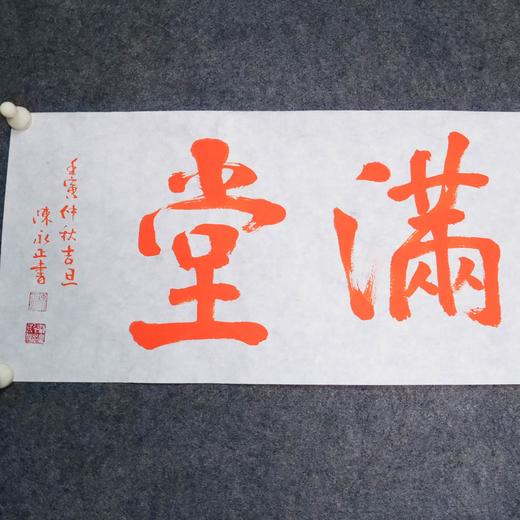 滿堂
壬寅仲秋吉旦
陳永正書